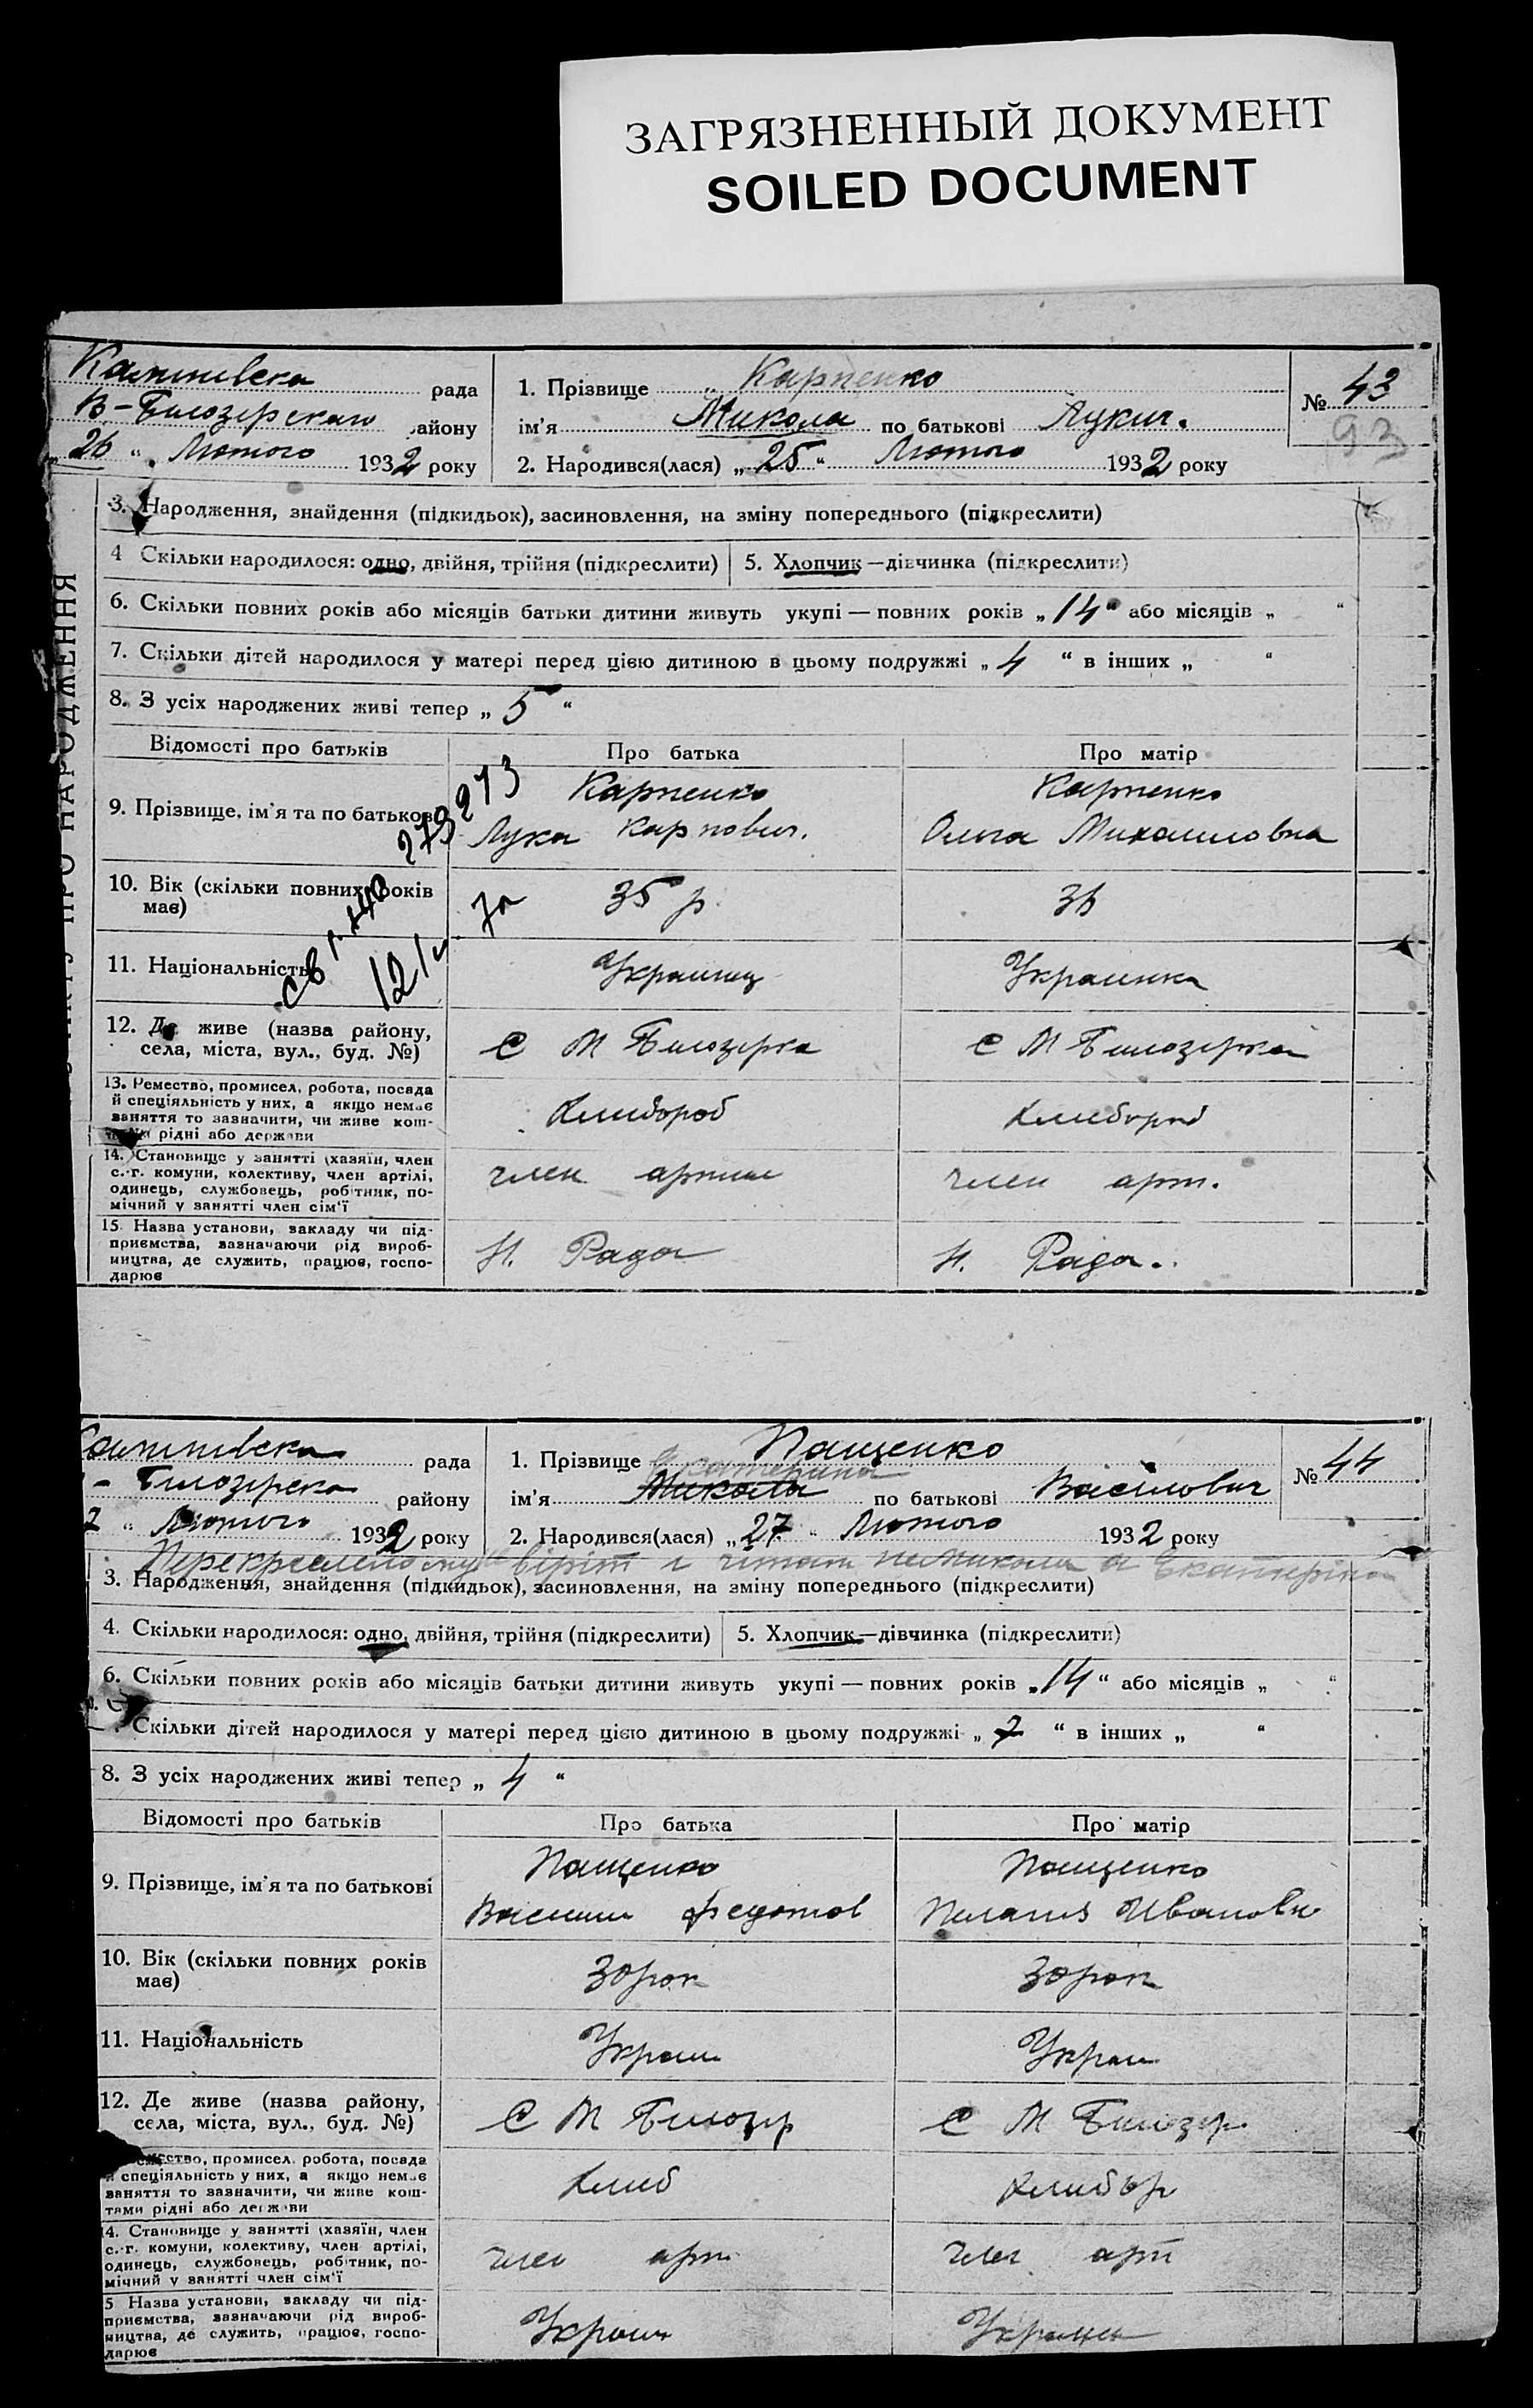 ЗАГРЯЗНЕННЫЙ ДОКУМЕНТ
SOILED DOCUMENT
рада
В-Билозерскаго району
26 " Лютого 1932 року
1. Прізвище Карпенко
ім'я Микола по батькові Лукич.
2. Народився(лася) „ 25 " Лютого 1932 року
№ 43
93
3. Народження, знайдення (підкидьок), засиновлення, на зміну попереднього (підкреслити)
4 Скільки народилося: одно, двійня, трійня (підкреслити)
5. Хлопчик—дівчинка (підкреслити)
6. Скільки повних років або місяців батьки дитини живуть укупі — повних років „ 14 " або місяців „ "
7. Скільки дітей народилося у матері перед цією дитиною в цьому подружжі „ 4 " в інших „ "
8. З усіх народжених живі тепер „ 5 "
Відомості про батьків
Про батька
Про матір
9. Прізвище, ім'я та по батькові
Карпенко
Лука Карпович.
Карпенко
Ольга Михаиловна
273
10. Вік (скільки повних років
має)
35 р.
36
11. Національність
Украинец
Украинка
12. Де живе (назва району,
села, міста, вул., буд. №)
С М Билозерка
С М Билозерка
13. Ремество, промисел, робота, посада
й спеціяльність у них, а якщо немає
заняття то зазначити, чи живе кош-
рідні або держави
Хлибороб
Хлибороб
14. Становище у занятті (хазяїн, член
с.-г. комуни, колективу, член артілі,
одинець, службовець, робітник, по-
мічний у занятті член сім'ї
член артили
член арт.
15. Назва установи, закладу чи під-
приємства, зазначаючи рід вироб-
ництва, де служить, працює, госпо-
дарює
Н. Рада
Н. Рада.
ПРО НАРОДЖЕННЯ
рада
- Билозерска району
7 " Лютого 1932 року
1. Прізвище Пащенко
Екатерина
ім'я Микола по батькові Василович
2. Народився(лася) „ 27 " Лютого 1932 року
№ 44
Перекреслено му віріт і читат не Микола а Екатеріна
3. Народження, знайдення (підкидьок), засиновлення, на зміну попереднього (підкреслити)
4. Скільки народилося: одно, двійня, трійня (підкреслити)
5. Хлопчик—дівчинка (підкреслити)
6. Скільки повних років або місяців батьки дитини живуть укупі — повних років „ 14 " або місяців „ "
Скільки дітей народилося у матері перед цією дитиною в цьому подружжі „ 7 " в інших „ "
8. З усіх народжених живі тепер „ 4 "
Відомості про батьків
Про батька
Про матір
9. Прізвище, ім'я та по батькові
Пащенко
Василий Федотов
Пащенко
Пилагия Ивановн
10. Вік (скільки повних років
має)
30 рок
30 рок
11. Національність
Украи
Украи
12. Де живе (назва району,
села, міста, вул., буд. №)
С М Билозер
С М Билозер
ремество, промисел, робота, посада
й спеціяльність у них, а якщо немає
заняття то зазначити, чи живе кош-
тами рідні або держави
Хлиб
Хлибор
14. Становище у занятті (хазяїн, член
с.-г. комуни, колективу, член артілі,
одинець, службовець, робітник, по-
мічний у занятті член сім'ї
член арт
член арт
5 Назва установи, закладу чи під-
приємства, зазначаючи рід вироб-
ництва, де служить, працює, госпо-
дарює